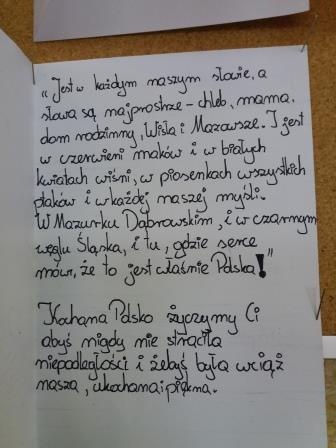 „Jest w każdym naszym słowie, a
słowa są najprostrze – chleb, mama,
dom rodzinny, Wisła i Mazowsze. I jest
w czerwieni maków i w białych
kwiatach wiśni, w piosenkach wszystkich
ptaków i w każdej naszej myśli.
W Mazurku Dąbrowskim, i w czarnym
węglu Śląska, i tu, gdzie serce
mówi, że to jest właśnie Polska!”
Kochana Polsko życzymy Ci
abyś nigdy nie straciła
niepodległości i żebyś była wciąż
nasza, ukochana i piękna.